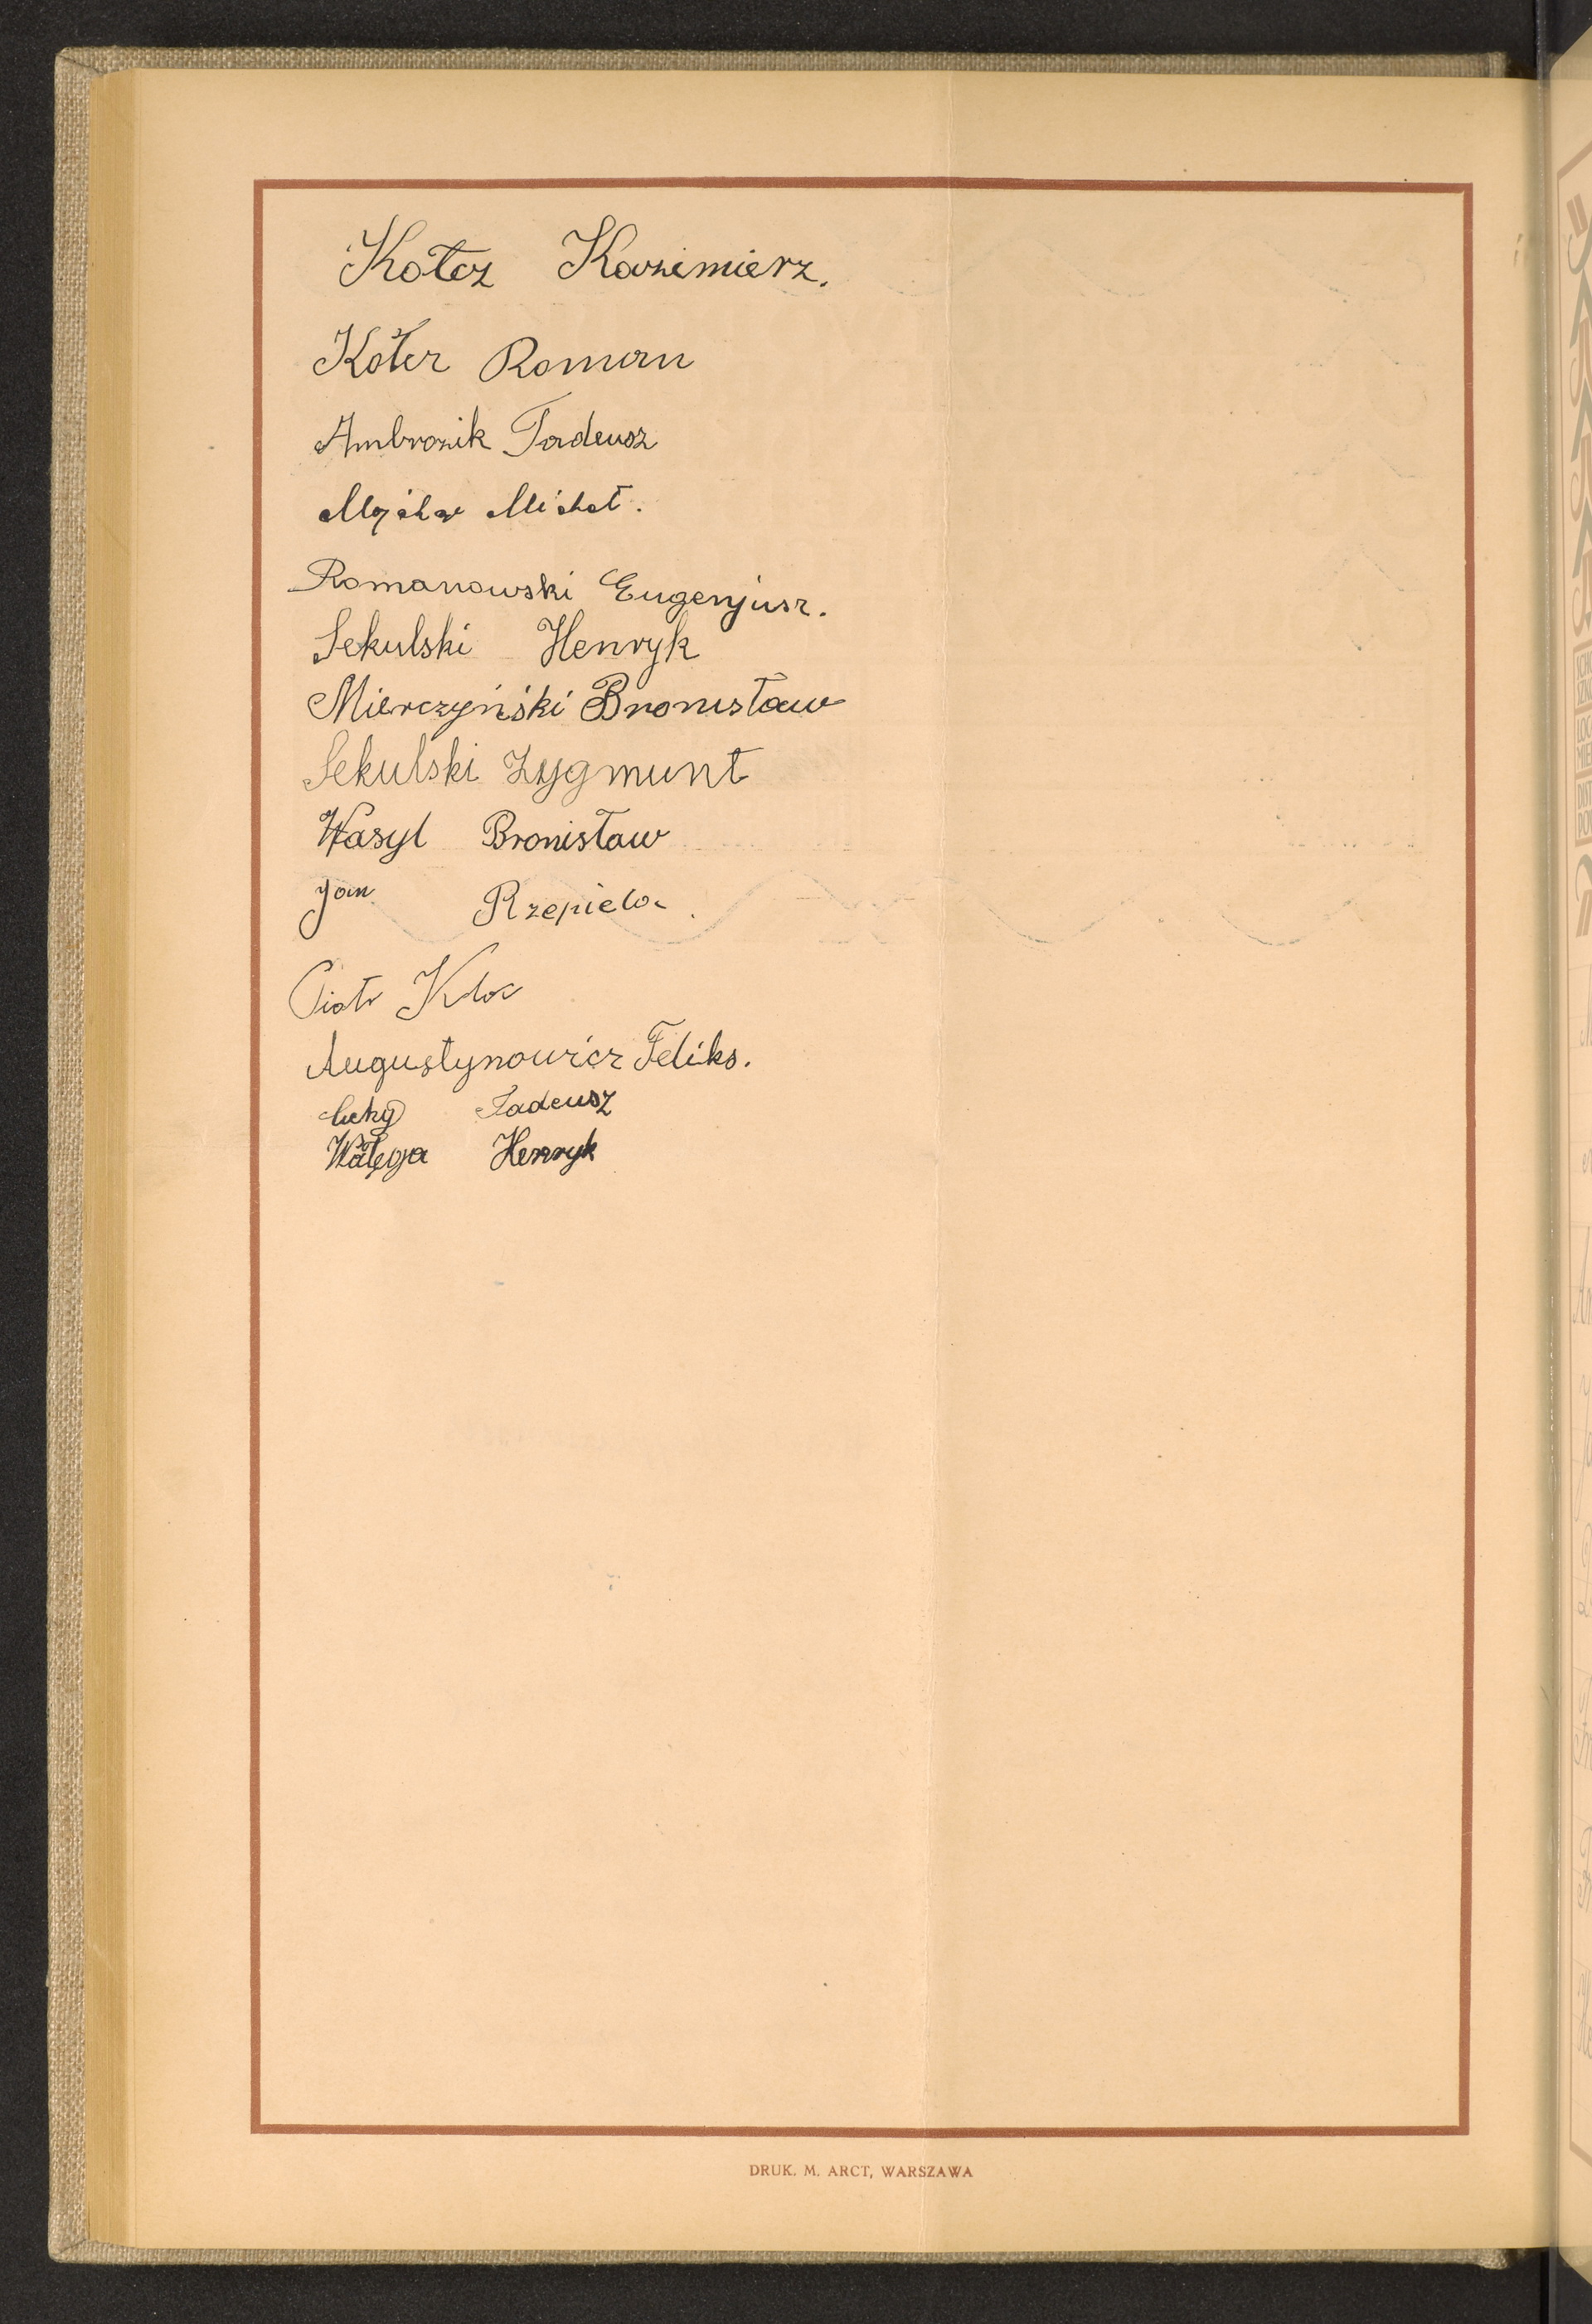 Kołcz Kazimierz.
Kołcz Roman
Ambrozik Tadeusz
Michał.
Romanowski Eugenjusz.
Sekulski Henryk
Mierczyński Bronisław
Sekulski Zygmunt
Wasyl Bronisław
Jan Rzepiela.
Piotr Kloc
Augustynowicz Feliks.
Tadeusz
Wałęga Henryk
DRUK. M. ARCT, WARSZAWA